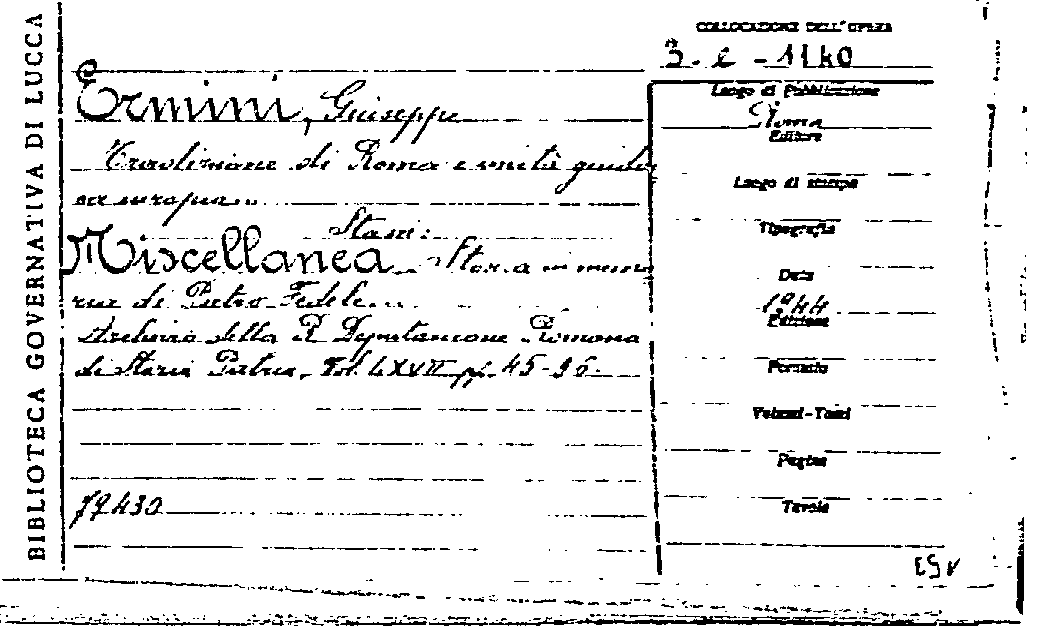 BIBLIOTECA GOVERNATIVA DI LUCCA
COLLOCAZIONE DELL'OPERA
3. e - 1140
Ermini, Giuseppe
Tradizione di Roma e unità giuridi
ca europea
Stam:
Miscellanea Storia in memo
ria di Pietro Fedele
Archivio della R. Deputazione Romana
di Storia Patria, Vol. LXVII pp. 45-
79430
Luogo di Pubblicazione
Roma
Editore
Luogo di stampa
Tipografia
Data
1944
Edizione
Formato
Volumi-Tomi
Pagine
Tavole